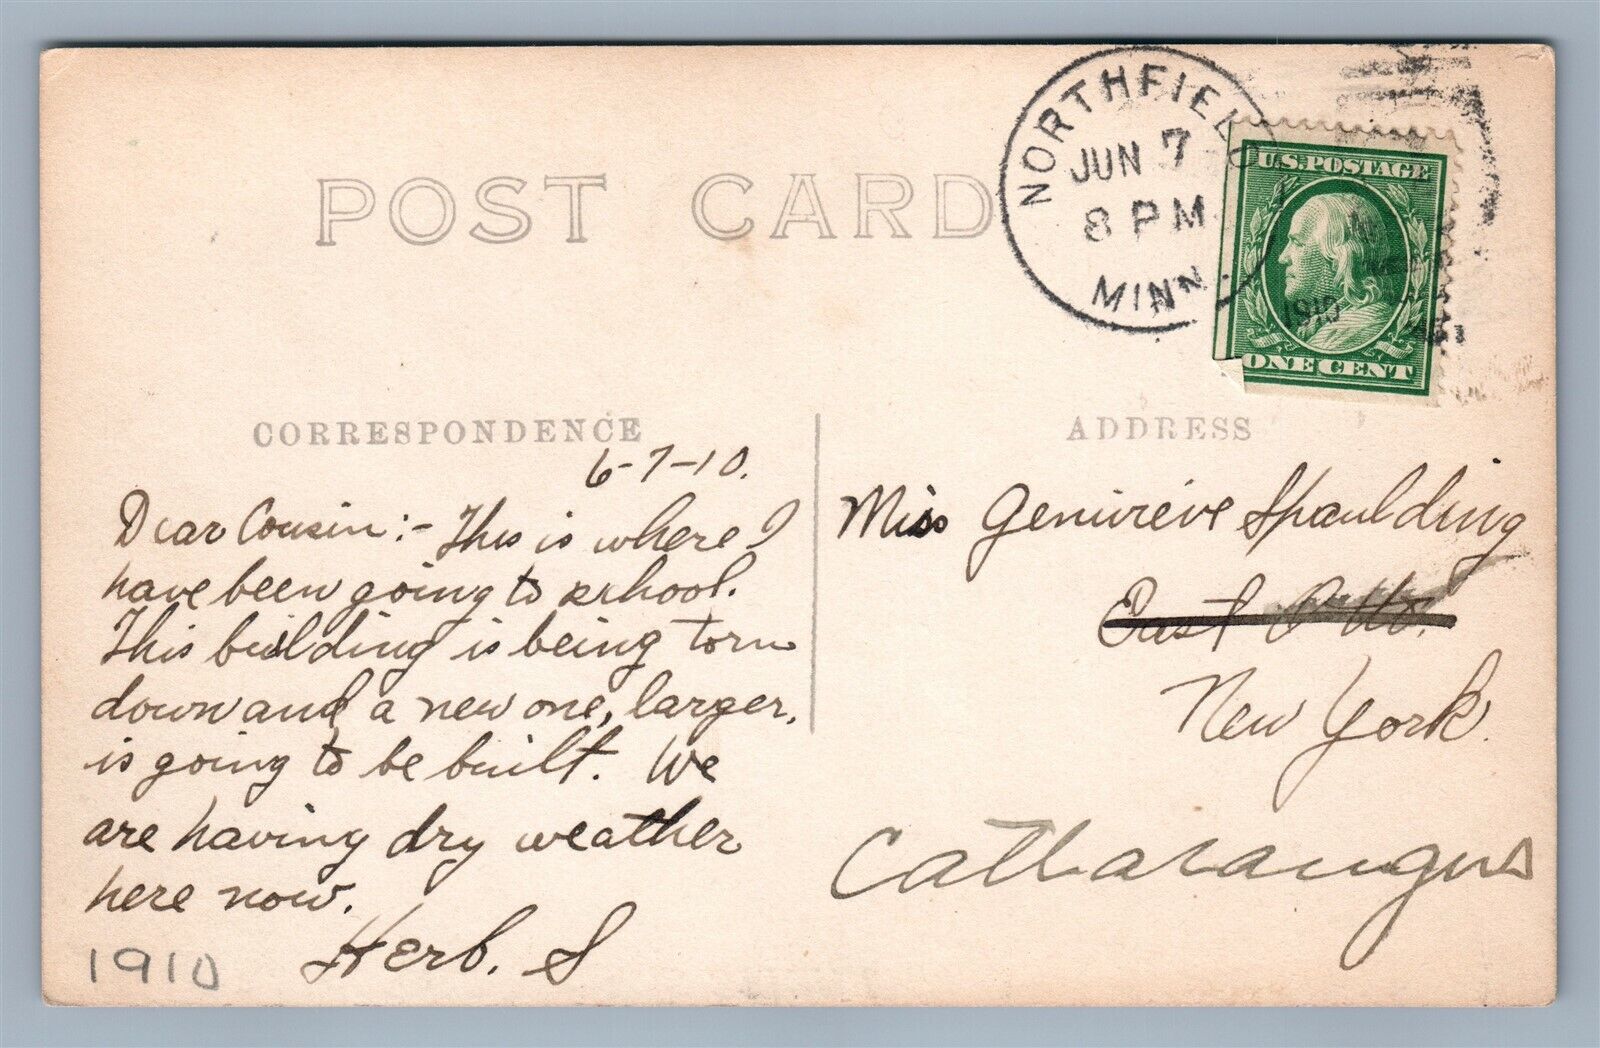 POST CARD
NORTHFIELD
JUN 7
8 PM
MINN.
1910
U.S. POSTAGE
ONE CENT
CORRESPONDENCE
6-7-10.
Dear Cousin:- This is where I
have been going to school.
This building is being torn
down and a new one, larger,
is going to be built. We
are having dry weather
here now.
Herb. S
1910
ADDRESS
Miss Genevieve Spaulding
East Otto.
New York.
Cattaraugus